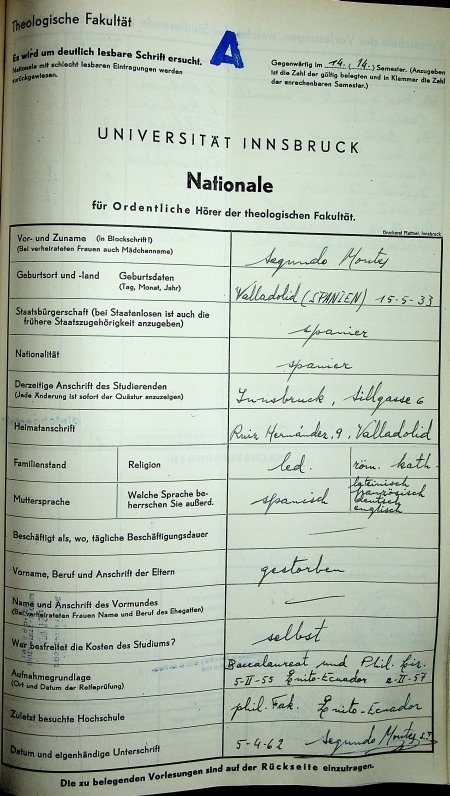 Theologische Fakultät
Es wird um deutlich lesbare Schrift ersucht.
Nationale mit schlecht lesbaren Eintragungen werden
zurückgewiesen.
A
Gegenwärtig im 14. (14.) Semester. (Anzugeben
ist die Zahl der gültig belegten und in Klammer die Zahl
der anrechenbaren Semester.)
UNIVERSITÄT INNSBRUCK
Nationale
für Ordentliche Hörer der theologischen Fakultät.
Druckerei Plattner, Innsbruck
Vor- und Zuname (in Blockschrift!)
(Bei verheirateten Frauen auch Mädchenname)
Segundo Montes
Geburtsort und -land Geburtsdaten
(Tag, Monat, Jahr)
Valladolid (SPANIEN) 15-5-33
Staatsbürgerschaft (bei Staatenlosen ist auch die
frühere Staatszugehörigkeit anzugeben)
spanier
Nationalität
spanier
Derzeitige Anschrift des Studierenden
(Jede Änderung ist sofort der Quästur anzuzeigen)
Innsbruck, Sillgasse 6
Heimatanschrift
Ruiz Hernández, 9, Valladolid
Familienstand
Religion
led.
röm. kath.
Muttersprache
Welche Sprache be-
herrschen Sie außerd.
spanisch
lateinisch
französisch
deutsch
englisch
Beschäftigt als, wo, tägliche Beschäftigungsdauer
Vorname, Beruf und Anschrift der Eltern
gestorben
Name und Anschrift des Vormundes
(Bei verheirateten Frauen Name und Beruf des Ehegatten)
Wer bestreitet die Kosten des Studiums?
selbst
Aufnahmegrundlage
(Ort und Datum der Reifeprüfung)
Baccalaureat und Phil. Liz.
5-II-55 Quito-Ecuador 2-II-57
Zuletzt besuchte Hochschule
phil. Fak. Quito-Ecuador
Datum und eigenhändige Unterschrift
5-4-62 Segundo Montes S.J.
Die zu belegenden Vorlesungen sind auf der Rückseite einzutragen.